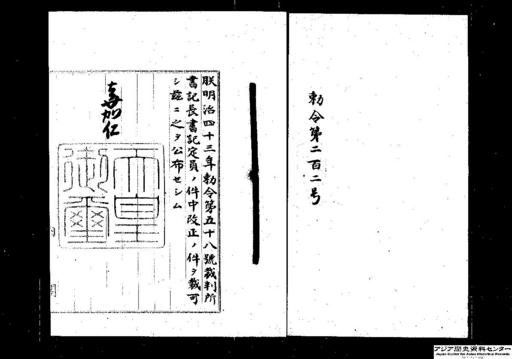 勅令第二百二号
朕明治四十三年勅令第五十八號裁判所
書記長書記定員ノ件中改正ノ件ヲ裁可
シ茲ニ之ヲ公布セシム
嘉仁
天皇
御璽
アジア歴史資料センター
Japan Center for Asian Historical Records